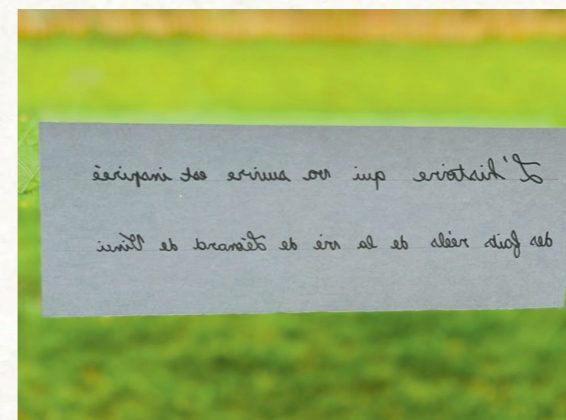 L'histoire qui va suivre est inspirée
des faits réels de la vie de Léonard de Vinci